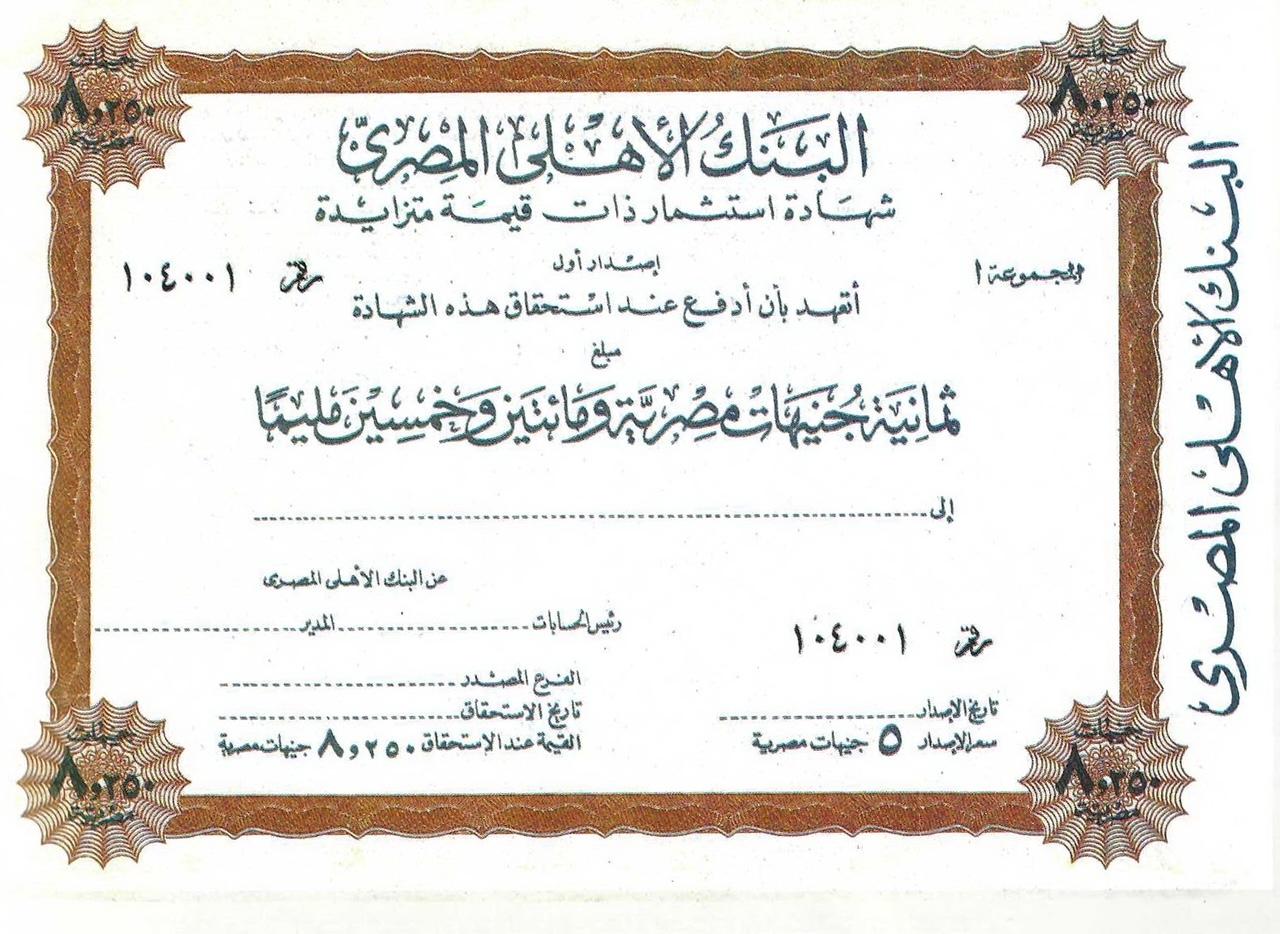 جنيهات
٨,٢٥٠
مصرية
جنيهات
٨,٢٥٠
مصرية
البَنكُ الأهْلى المِصْرىّ
شهادة استثمار ذات قيمة متزايدة
إصدار أول
المجموعة ١
رقم ١٠٤٠٠١
أتعهد بأن أدفع عند استحقاق هذه الشهادة
مبلغ
ثمانية جُنيهات مصريَّة ومائتين وخمسين مليمًا
إلى
عن البنك الأهلى المصرى
رئيس الحسابات المدير
رقم ١٠٤٠٠١
الفرع المصدر
تاريخ الإصدار
تاريخ الاستحقاق
سعر الإصدار ٥ جنيهات مصرية
القيمة عند الإستحقاق ٨,٢٥٠ جنيهات مصرية
جنيهات
٨,٢٥٠
مصرية
جنيهات
٨,٢٥٠
مصرية
البنك الأهلى المصرى